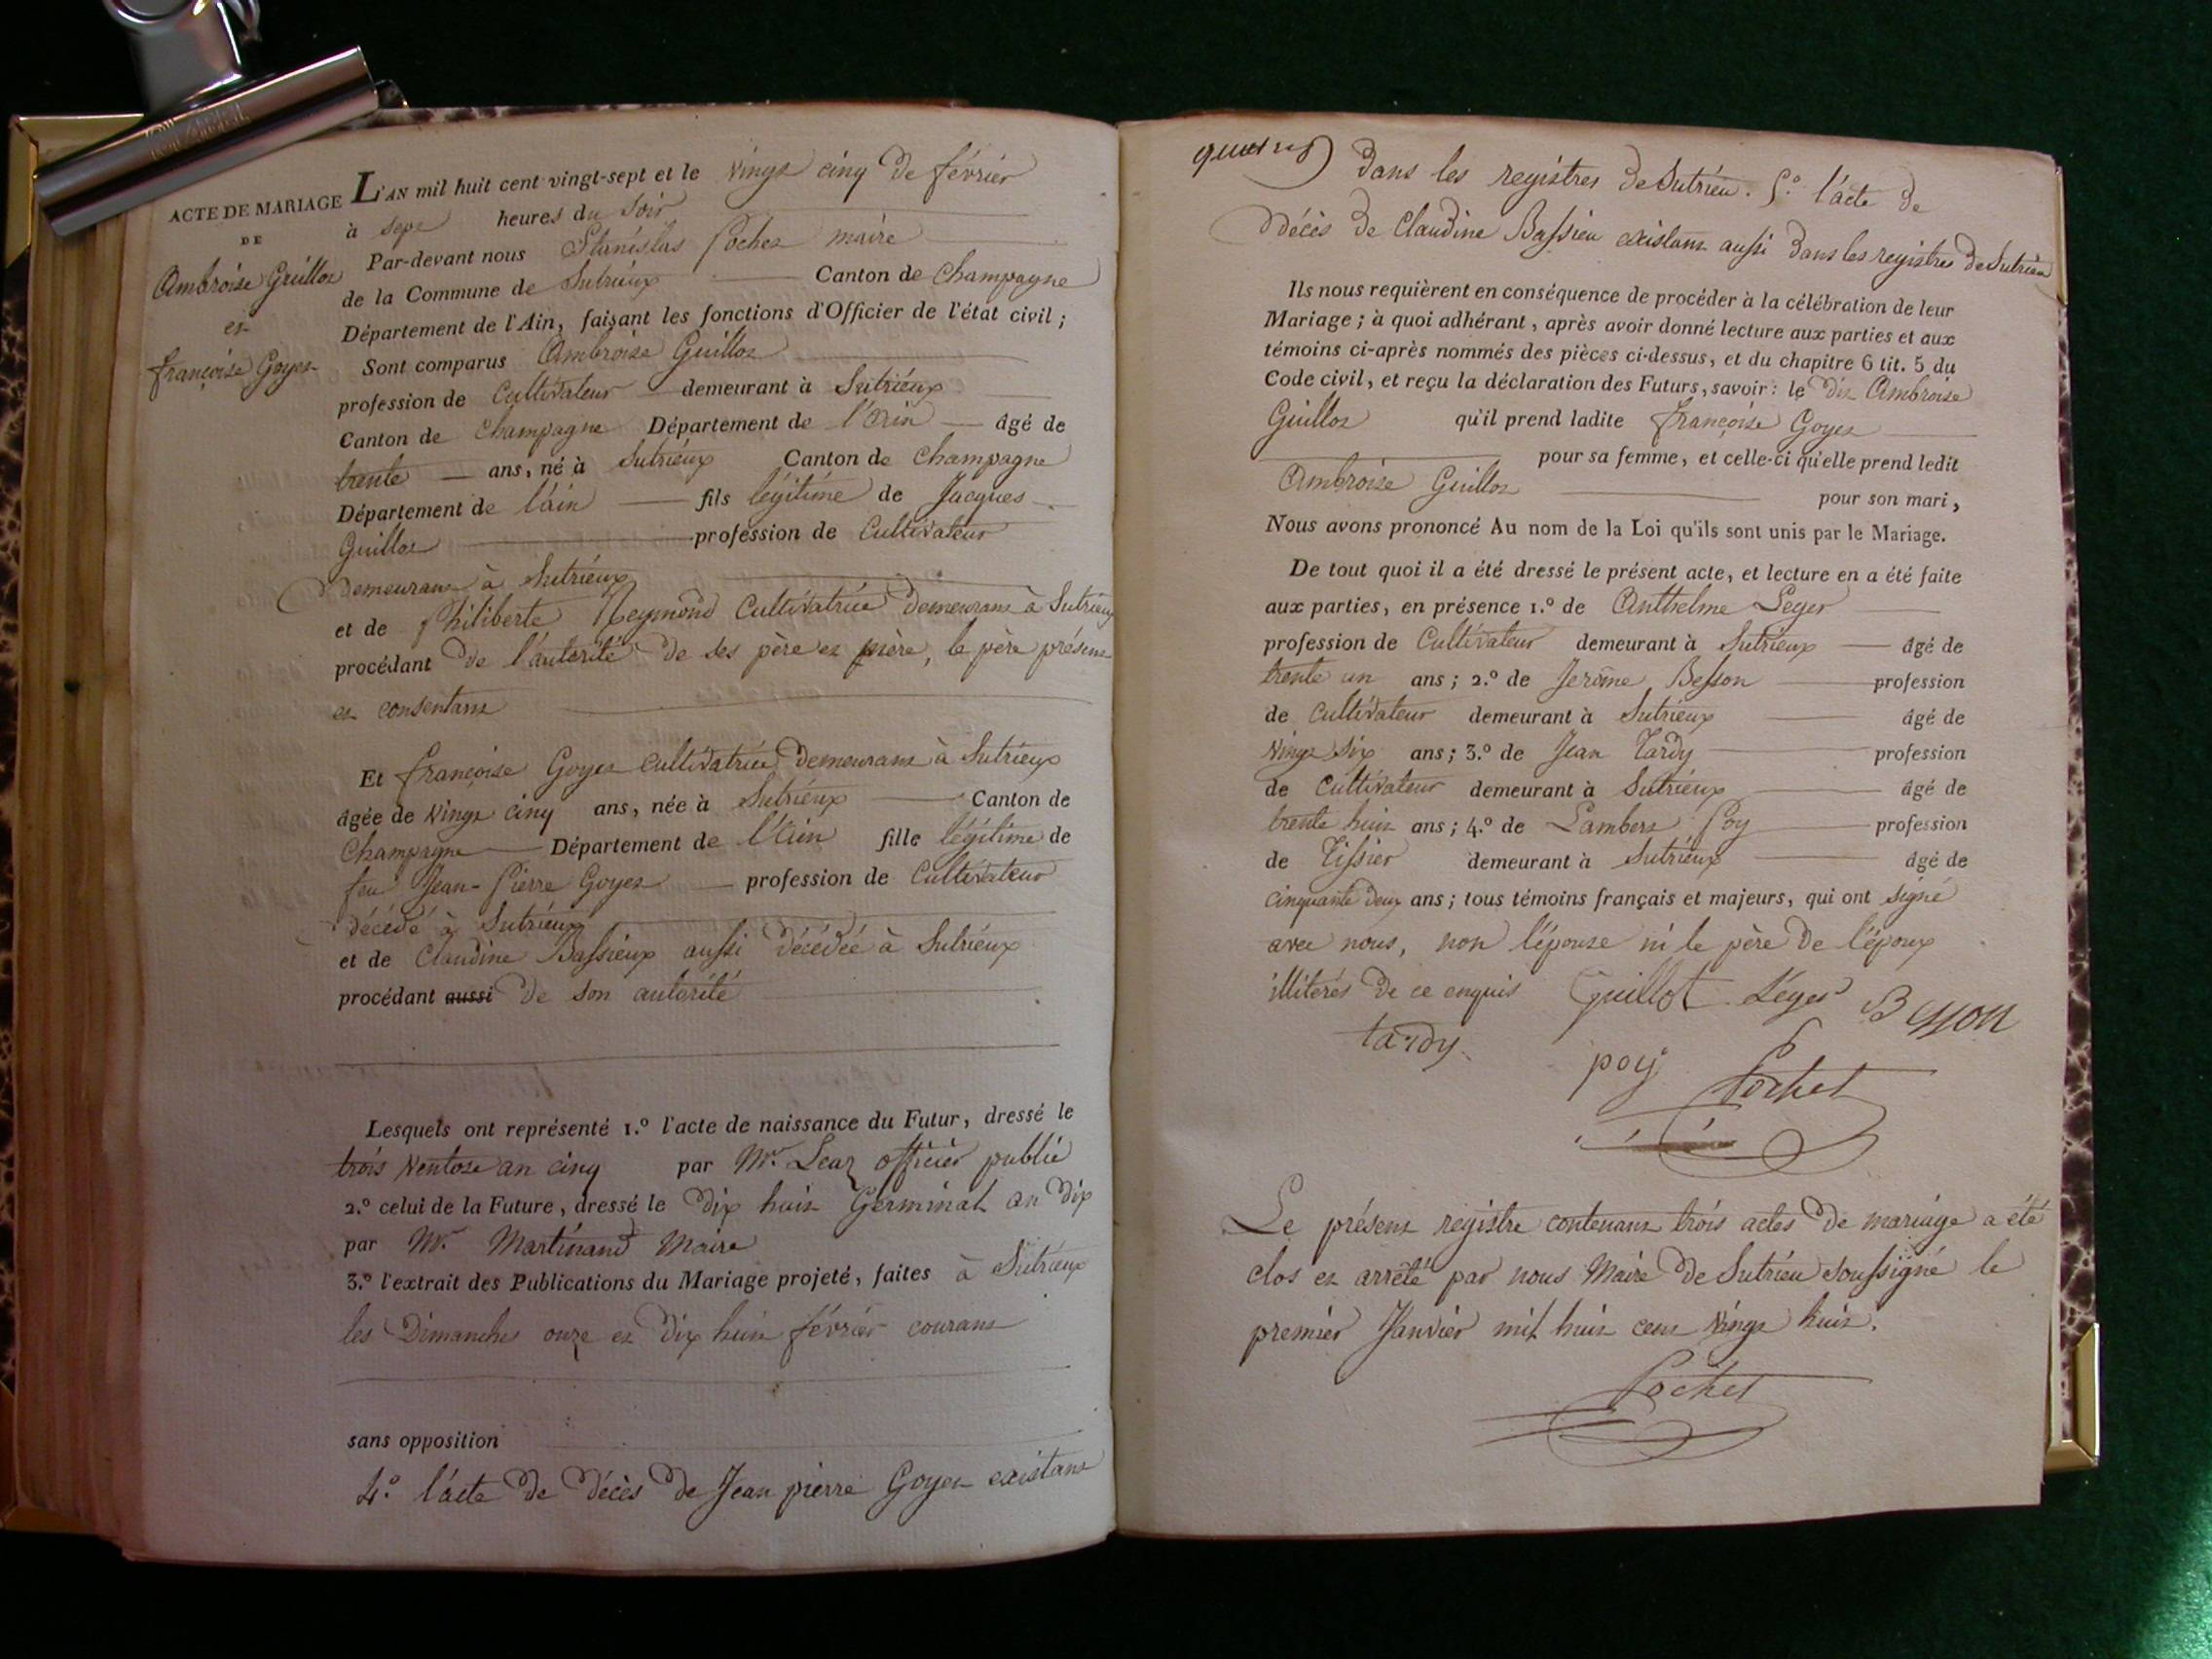 ACTE DE MARIAGE
DE
Ambroise Guillot
et
françoise Goyet
L'AN mil huit cent vingt-sept et le vingt cinq de février
à sept heures du soir
Par-devant nous Stanislas Pochet maire
de la Commune de Sutrieux Canton de Champagne
Département de l'Ain, faisant les fonctions d'Officier de l'état civil ;
Sont comparus Ambroise Guillot
profession de Cultivateur demeurant à Sutrieux
Canton de Champagne Département de l'Ain âgé de
trente ans, né à Sutrieux Canton de Champagne
Département de l'ain fils légitime de Jacques
Guillot profession de Cultivateur
demeurant à Sutrieux
et de philiberte Reymond Cultivatrice demeurant à Sutrieux
procédant de l'autorité de ses père et mère, le père présent
et consentant
Et françoise Goyet cultivatrice demeurant à Sutrieux
âgée de vingt cinq ans, née à Sutrieux Canton de
Champagne Département de l'Ain fille légitime de
feu Jean-Pierre Goyet profession de Cultivateur
décédé à Sutrieux
et de Claudine Bassieux aussi décédée à Sutrieux
procédant aussi de son autorité
Lesquels ont représenté 1.º l'acte de naissance du Futur, dressé le
trois Ventose an cinq par Mr. Officier public
2.º celui de la Future, dressé le dix huit Germinal an dix
par Mr. Martinand Maire
3.º l'extrait des Publications du Mariage projeté, faites à Sutrieux
les Dimanches onze et dix huit février courant
sans opposition
4.º l'acte de décès de Jean pierre Goyet existant
dans les registres de Sutrieu. 5.º l'acte de
décès de Claudine Bassieu existant aussi dans les registres de Sutrieu
Ils nous requièrent en conséquence de procéder à la célébration de leur
Mariage ; à quoi adhérant, après avoir donné lecture aux parties et aux
témoins ci-après nommés des pièces ci-dessus, et du chapitre 6 tit. 5 du
Code civil, et reçu la déclaration des Futurs, savoir : le dit Ambroise
Guillot qu'il prend ladite françoise Goyet
pour sa femme, et celle-ci qu'elle prend ledit
Ambroise Guillot pour son mari,
Nous avons prononcé Au nom de la Loi qu'ils sont unis par le Mariage.
De tout quoi il a été dressé le présent acte, et lecture en a été faite
aux parties, en présence 1.º de Anthelme Leger
profession de Cultivateur demeurant à Sutrieux âgé de
trente un ans ; 2.º de Jerôme Besson profession
de Cultivateur demeurant à Sutrieux âgé de
vingt six ans ; 3.º de Jean Tardy profession
de Cultivateur demeurant à Sutrieux âgé de
trente huit ans ; 4.º de Lambert Poy profession
de Tissier demeurant à Sutrieux âgé de
cinquante deux ans ; tous témoins français et majeurs, qui ont signé
avec nous, non l'épouse ni le père de l'époux
illiterés de ce enquis Guillot Léger Besson
tardy poy Pochet
Le présent registre contenant trois actes de mariage a été
clos et arrêté par nous Maire de Sutrieu soussigné le
premier Janvier mil huit cent vingt huit.
Pochet